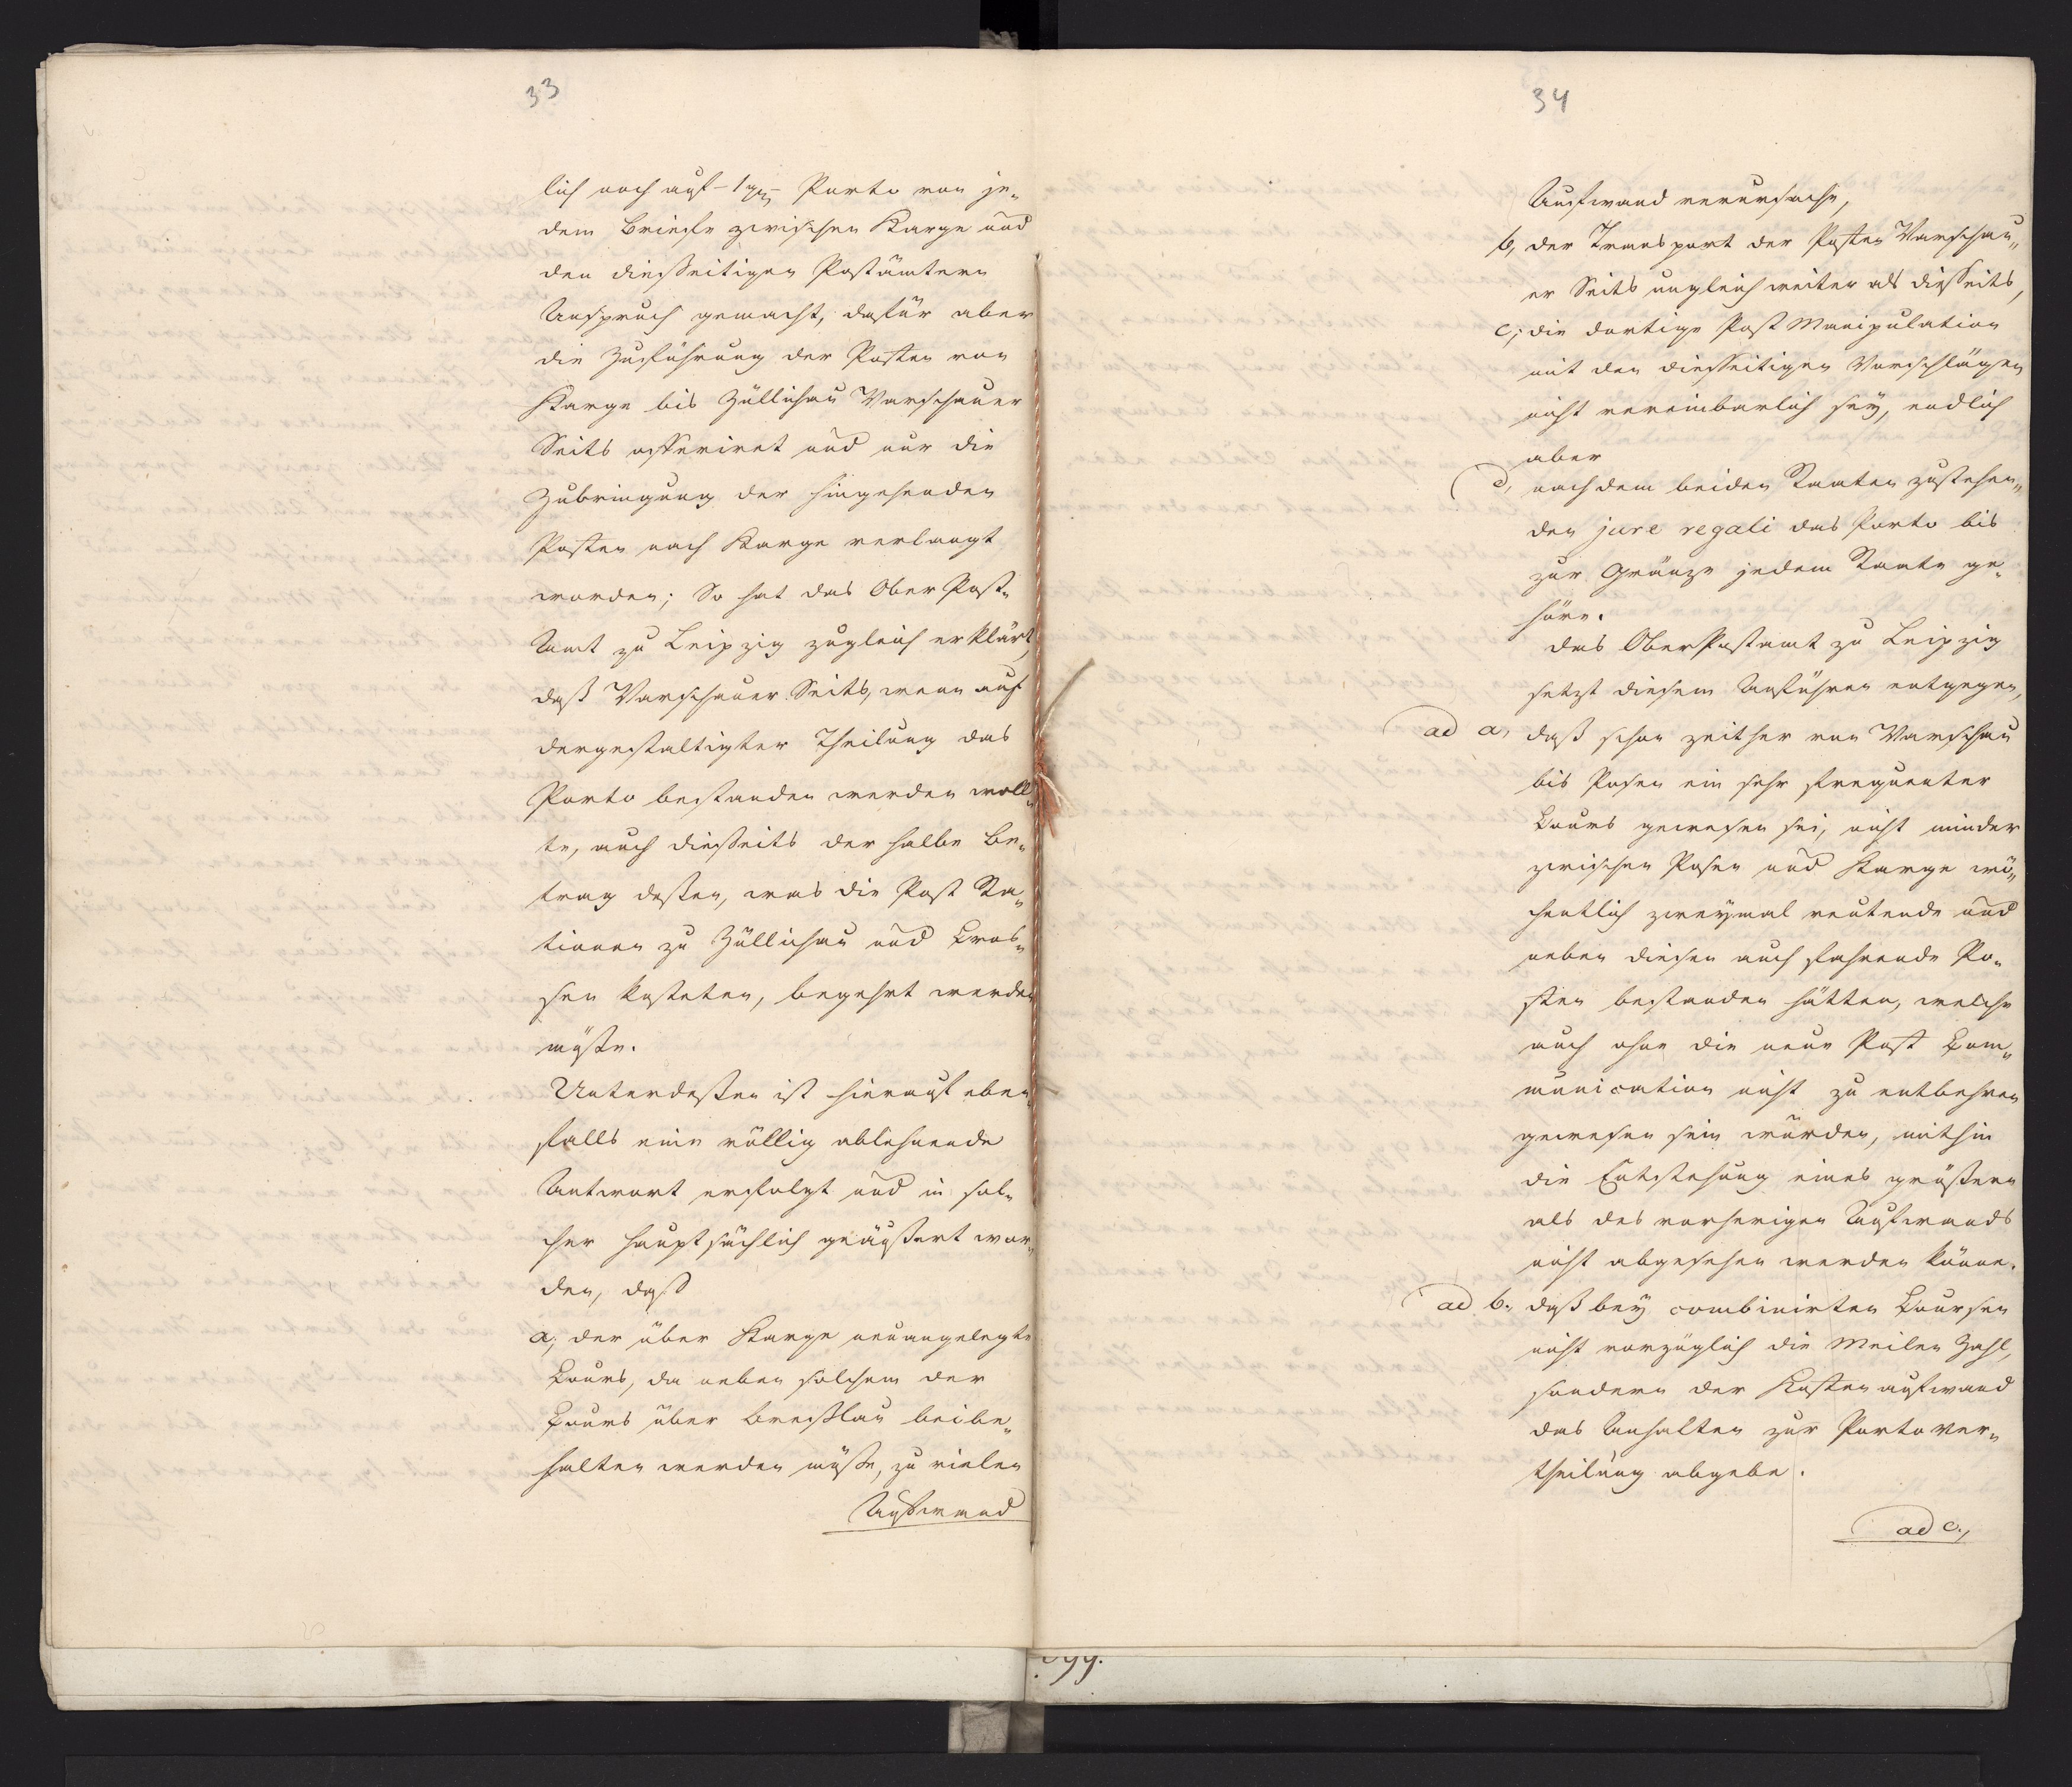 33
lich noch auf – 1 gr – Porto von je„
dem Briefe zwischen Karge und
den diesseitigen Postämtern
Anspruch gemacht, dafür aber
die Zuführung der Posten von
Karge bis Züllichau Warschauer
Seits offeriret und nur die
Zubringung der hingehenden
Posten nach Karge verlangt
worden; So hat das Ober Post„
Amt zu Leipzig zugleich erklärt,
daß Warschauer Seits, wenn auf
dergestaltigter Theilung das
Porto bestanden werden woll„
te, auch diesseits der halbe Be„
trag deßen, was die Post Sta„
tionen zu Züllichau und Cros„
sen kosteten, begehrt werden
müßte.
Unterdeßen ist hierauf eben„
falls eine völlig ablehnende
Antwort erfolgt und in sol„
cher hauptsächlich geäußert wor„
den, daß
a, der über Karge neuangelegte
Cours, da neben solchem der
Cours über Breßlau beibe„
halten werden müße, zu vielen
Aufwand
34
Aufwand verursache,
b, der Transport der Posten Warschau„
er Seits ungleich weiter als diesseits,
c, die dortige Post Manipulation
mit den diesseitigen Vorschlägen
nicht vereinbarlich sey, endlich
aber
d, nach dem beiden Staaten zustehen„
den jure regali das Porto bis
zur Gränze jedem Staate ge„
höre.
Das OberPostamt zu Leipzig
setzt diesem Anführen entgegen,
ad a, daß schon zeither von Warschau
bis Posen ein sehr frequenter
Cours gewesen sei, nicht minder
zwischen Posen und Karge wö„
chentlich zweymal reutende und
neben diesen auch fahrende Po„
sten bestanden hätten, welche
auch ohne die neue Post Com„
munication nicht zu entbehren
gewesen sein würden, mithin
die Entstehung eines größern
als des vorherigen Aufwands
nicht abgesehen werden könne.
ad b., daß bey combinirten Coursen
nicht vorzüglich die Meilen Zahl,
sondern der Kostenaufwand
das Anhalten zur Portover„
theilung abgebe.
ad c.,